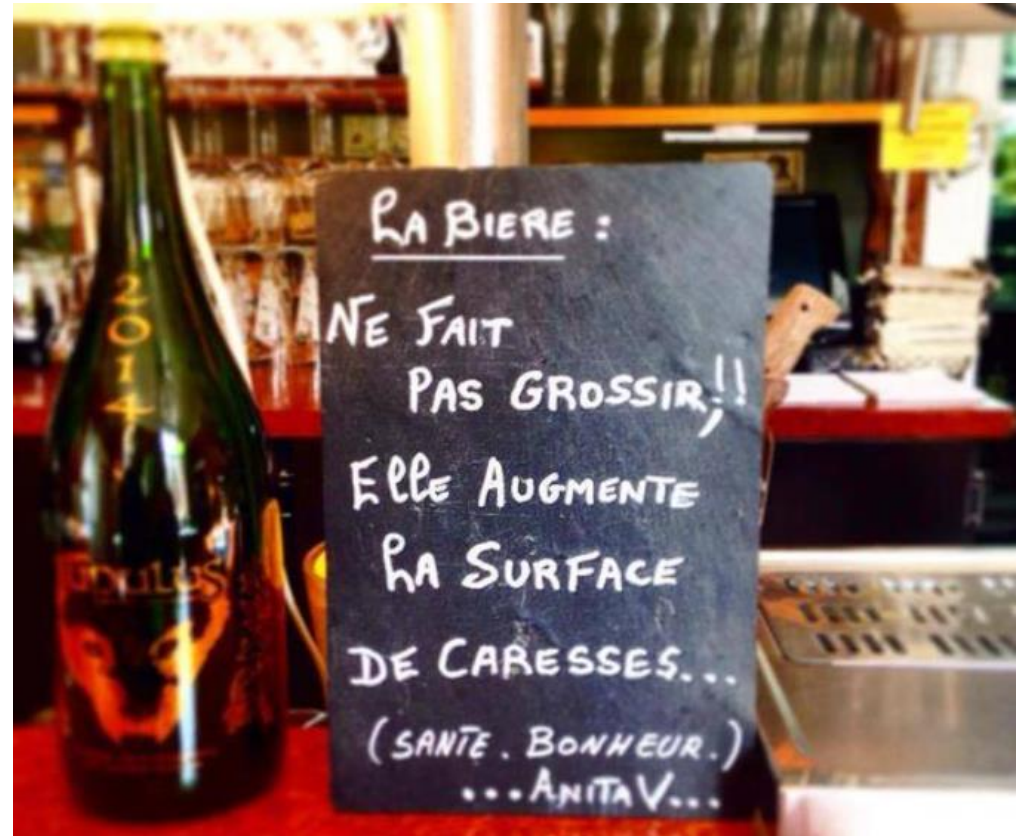 2014
LA BIERE :
NE FAIT
PAS GROSSIR,!!
ELLE AUGMENTE
LA SURFACE
DE CARESSES...
(SANTE. BONHEUR.)
...ANITA V...